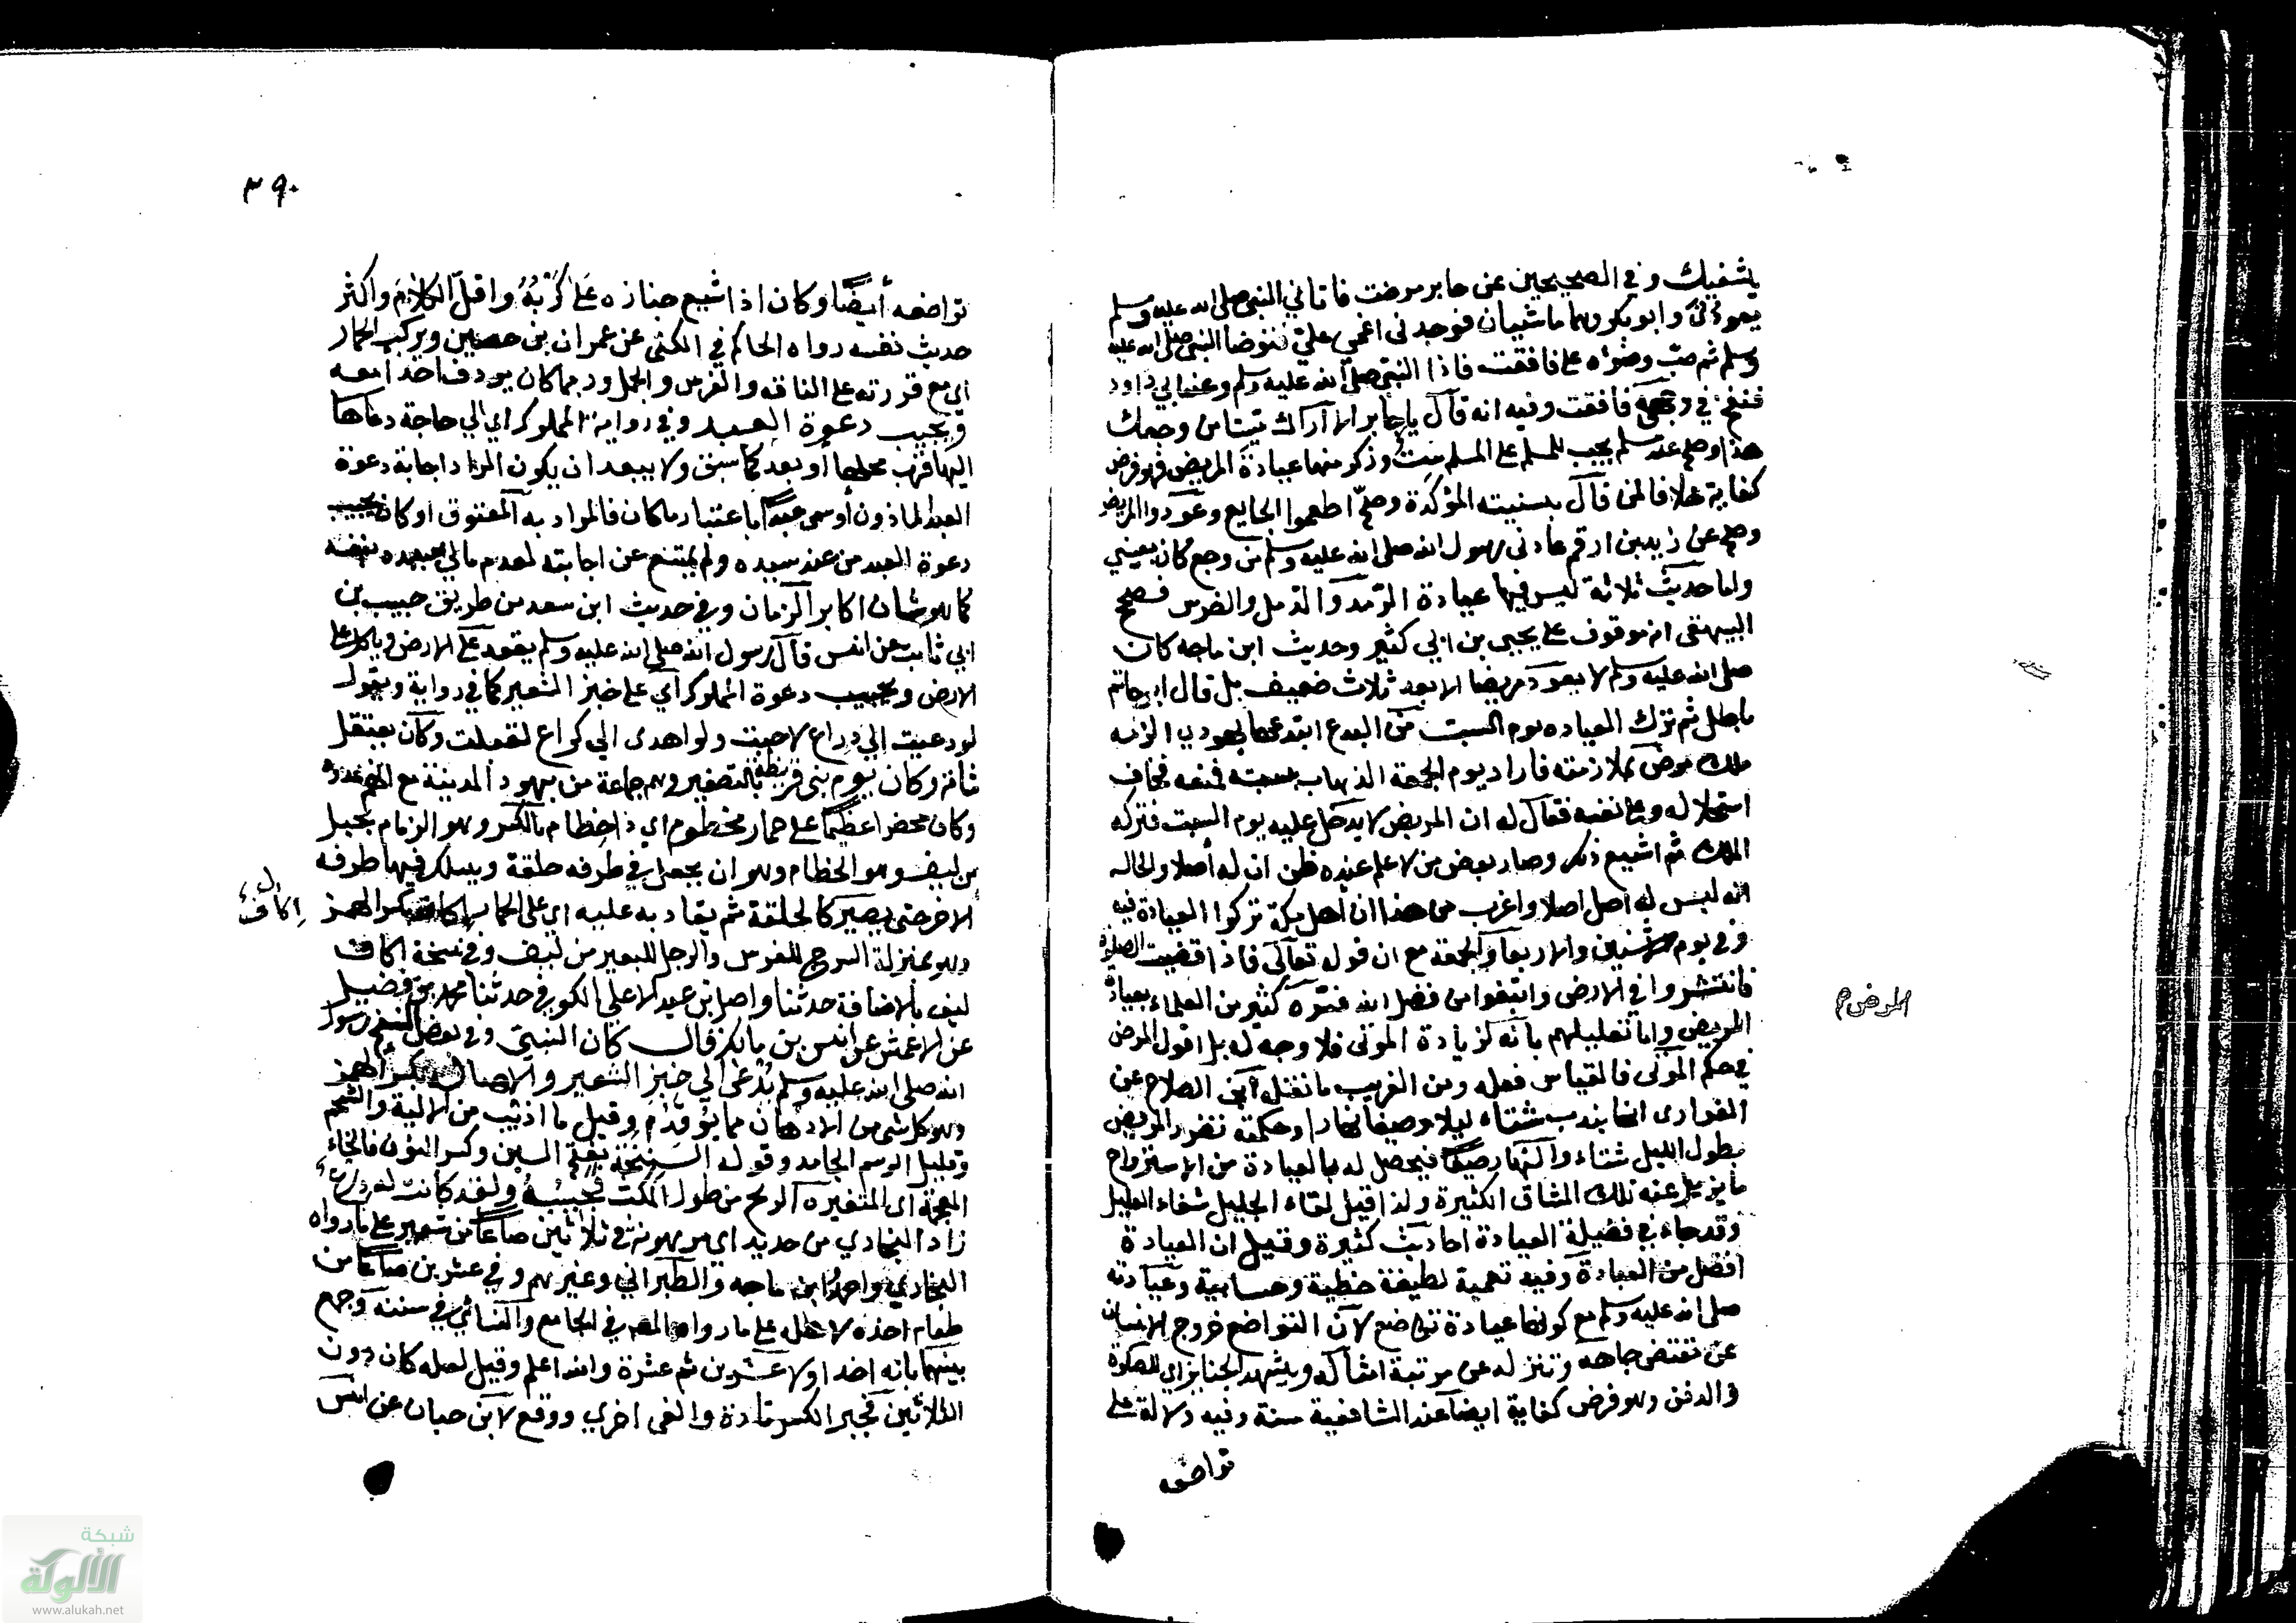 يشفيك وفي الصحيحين عن جابر مرضت فاتاني النبي صلى الله عليه وسلم
يعودني وابو بكر وهما ماشيان فوجدني اغمي علي فتوضا النبي صلى الله عليه
وسلم ثم صب وضوءه علي فافقت فاذا النبي صلى الله عليه وسلم وعند ابي داود
فنفخ في وجهي فافقت وفيه انه قال يا جابر لا اراك ميتا من وجعك
هذا وصح عند مسلم يجب للمسلم على المسلم ست وذكر منها عيادة المريض فهو فرض
كفاية خلافا لمن قال بسنيته المؤكدة وصح اطعموا الجايع وعودوا المريض
وصح عن زيد بن ارقم عادني رسول الله صلى الله عليه وسلم من وجع كان بعيني
واما حديث ثلاثة ليس فيها عيادة الرمد والدمل والضرس فصحح
البيهقي انه موقوف على يحيى بن ابي كثير وحديث ابن ماجه كان
صلى الله عليه وسلم لا يعود مريضا الا بعد ثلاث ضعيف بل قال ابو حاتم
باطل ثم ترك العياده يوم السبت من البدع ابتدعها يهودي الزمه
ملك مرض بملازمته فاراد يوم الجمعة الذهاب لسبته فمنعه فخاف
استحلاله وعلى نفسه فقال له ان المريض لا يدخل عليه يوم السبت فتركه
الملك ثم اشيع ذلك وصار بعض من لا علم عنده ظن ان له أصلا والحاله
انه ليس له اصل اصلا واغرب من هذا ان اهل مكة تركوا العيادة فيه
وفي يوم الاثنين والاربعا والجمعة مع ان قوله تعالى فاذا قضيت الصلوة
فانتشروا في الارض وابتغوا من فضل الله فسره كثير من العلماء بعيادة
المريض واما تعليلهم بانه لزيادة الموتى فلا وجه له بل اقول المرض
المرض م
في حكم الموتى فالقياس فعله ومن الغريب ما نقل ابن الصلاح عن
الفراوى انها يندب شتاء ليلا وصيفا نهارا وحكمته تضرر المريض
بطول الليل شتاء والنهار صيفا فيحصل له بالعيادة من الاسترواح
ما يزيل عنه تلك المشاق الكثيرة ولذا قيل لقاء الخليل شفاء العليل
وقد جاء في فضيلة العيادة احاديث كثيرة وقيل ان العيادة
افضل من العبادة وفيه تعمية لطيفة خطية وحسابية وعيادته
صلى الله عليه وسلم مع كونها عبادة تواضع لان التواضع خروج الانسان
عن مقتضى جاهه وتنزله عن مرتبة امثاله ويشهد الجنايز اي للصلوة
والدفن وهو فرض كفاية ايضا عند الشافعية سنة وفيه دلالة على
تواضعه
٣٩٠
تواضعه أيضا وكان اذا شيع جنازه علا كربه واقل الكلام واكثر
حديث نفسه رواه الحاكم في الكنى عن عمران بن حصين ويركب الحمار
اي مع قدرته على الناقه والفرس والجمل وربما كان يردف احدا معه
ويجيب دعوة العبد وفي رواية المملوك اي الى حاجة دعاها
اليها قرب محلها أو بعد كما سبق ولا يبعد ان يكون المراد اجابة دعوة
العبد الماذون أو سمى عبدا باعتبار ما كان فالمراد به المعتوق او كان يجيب
دعوة العبد من عند سيده ولم يمتنع عن اجابته لعدم مجيئه بنفسه
كما هو شان اكابر الزمان وفي حديث ابن سعد من طريق حبيب بن
ابي ثابت عن انس قال رسول الله صلى الله عليه وسلم يقعد على الارض وياكل على
الارض ويجيب دعوة المملوك اي على خبز الشعير كما في رواية ويقول
لو دعيت الى ذراع لاجبت ولو اهدى الي كراع لقبلت وكان يعتقل
شاته وكان يوم بني قريظة بالتصغير وهم جماعة من يهود المدينة
وكان محضرا عظيما على حمار مخطوم اي ذا خطام بالكسر وهو الزمام بحبل
من ليف وهو الخطام وهو ان يجعل في طرفه حلقة ويسلك فيها طرفه
الاخر حتى يصير كالحلقة ثم يقاد به عليه اي على الحمار اكاف بكسر الهمز
اكاف
وهو بمنزلة السرج للفرس والرحل للبعير من ليف وفي نسخة اكاف
ليف بالاضافة حدثنا واصل بن عبد الاعلى الكوفي حدثنا محمد بن فضيل
عن الاعمش عن انس بن مالك قال كان النبي وفي بعض النسخ رسول
الله صلى الله عليه وسلم يدعى الى خبز الشعير والاهالة بكسر الهمز
وهو كل شي من الادهان مما يؤتدم وقيل ما اذيب من الالية والشحم
وقيل الدسم الجامد وقوله السنخة بفتح السين وكسر النون فالخاء
المعجمة اى المتغيره الريح من طول المكث فيجيب ولقد كانت له درع
زاد البخاري من حديد اي مرهونة في ثلاثين صاعا من شعير على ما رواه
البخاري واحمد وابن ماجه والطبراني وغيرهم وفي عشرين صاعا من
طعام اخذه لاهله على ما رواه المصر في الجامع والنسائي في سننه وجمع
بينهما بانه اخذ اولا عشرين ثم عشرة والله اعلم وقيل لعله كان دون
الثلاثين فجبر الكسر تارة والغى اخرى ووقع لابن حبان عن انس
شبكة
الألوكة
www.alukah.net